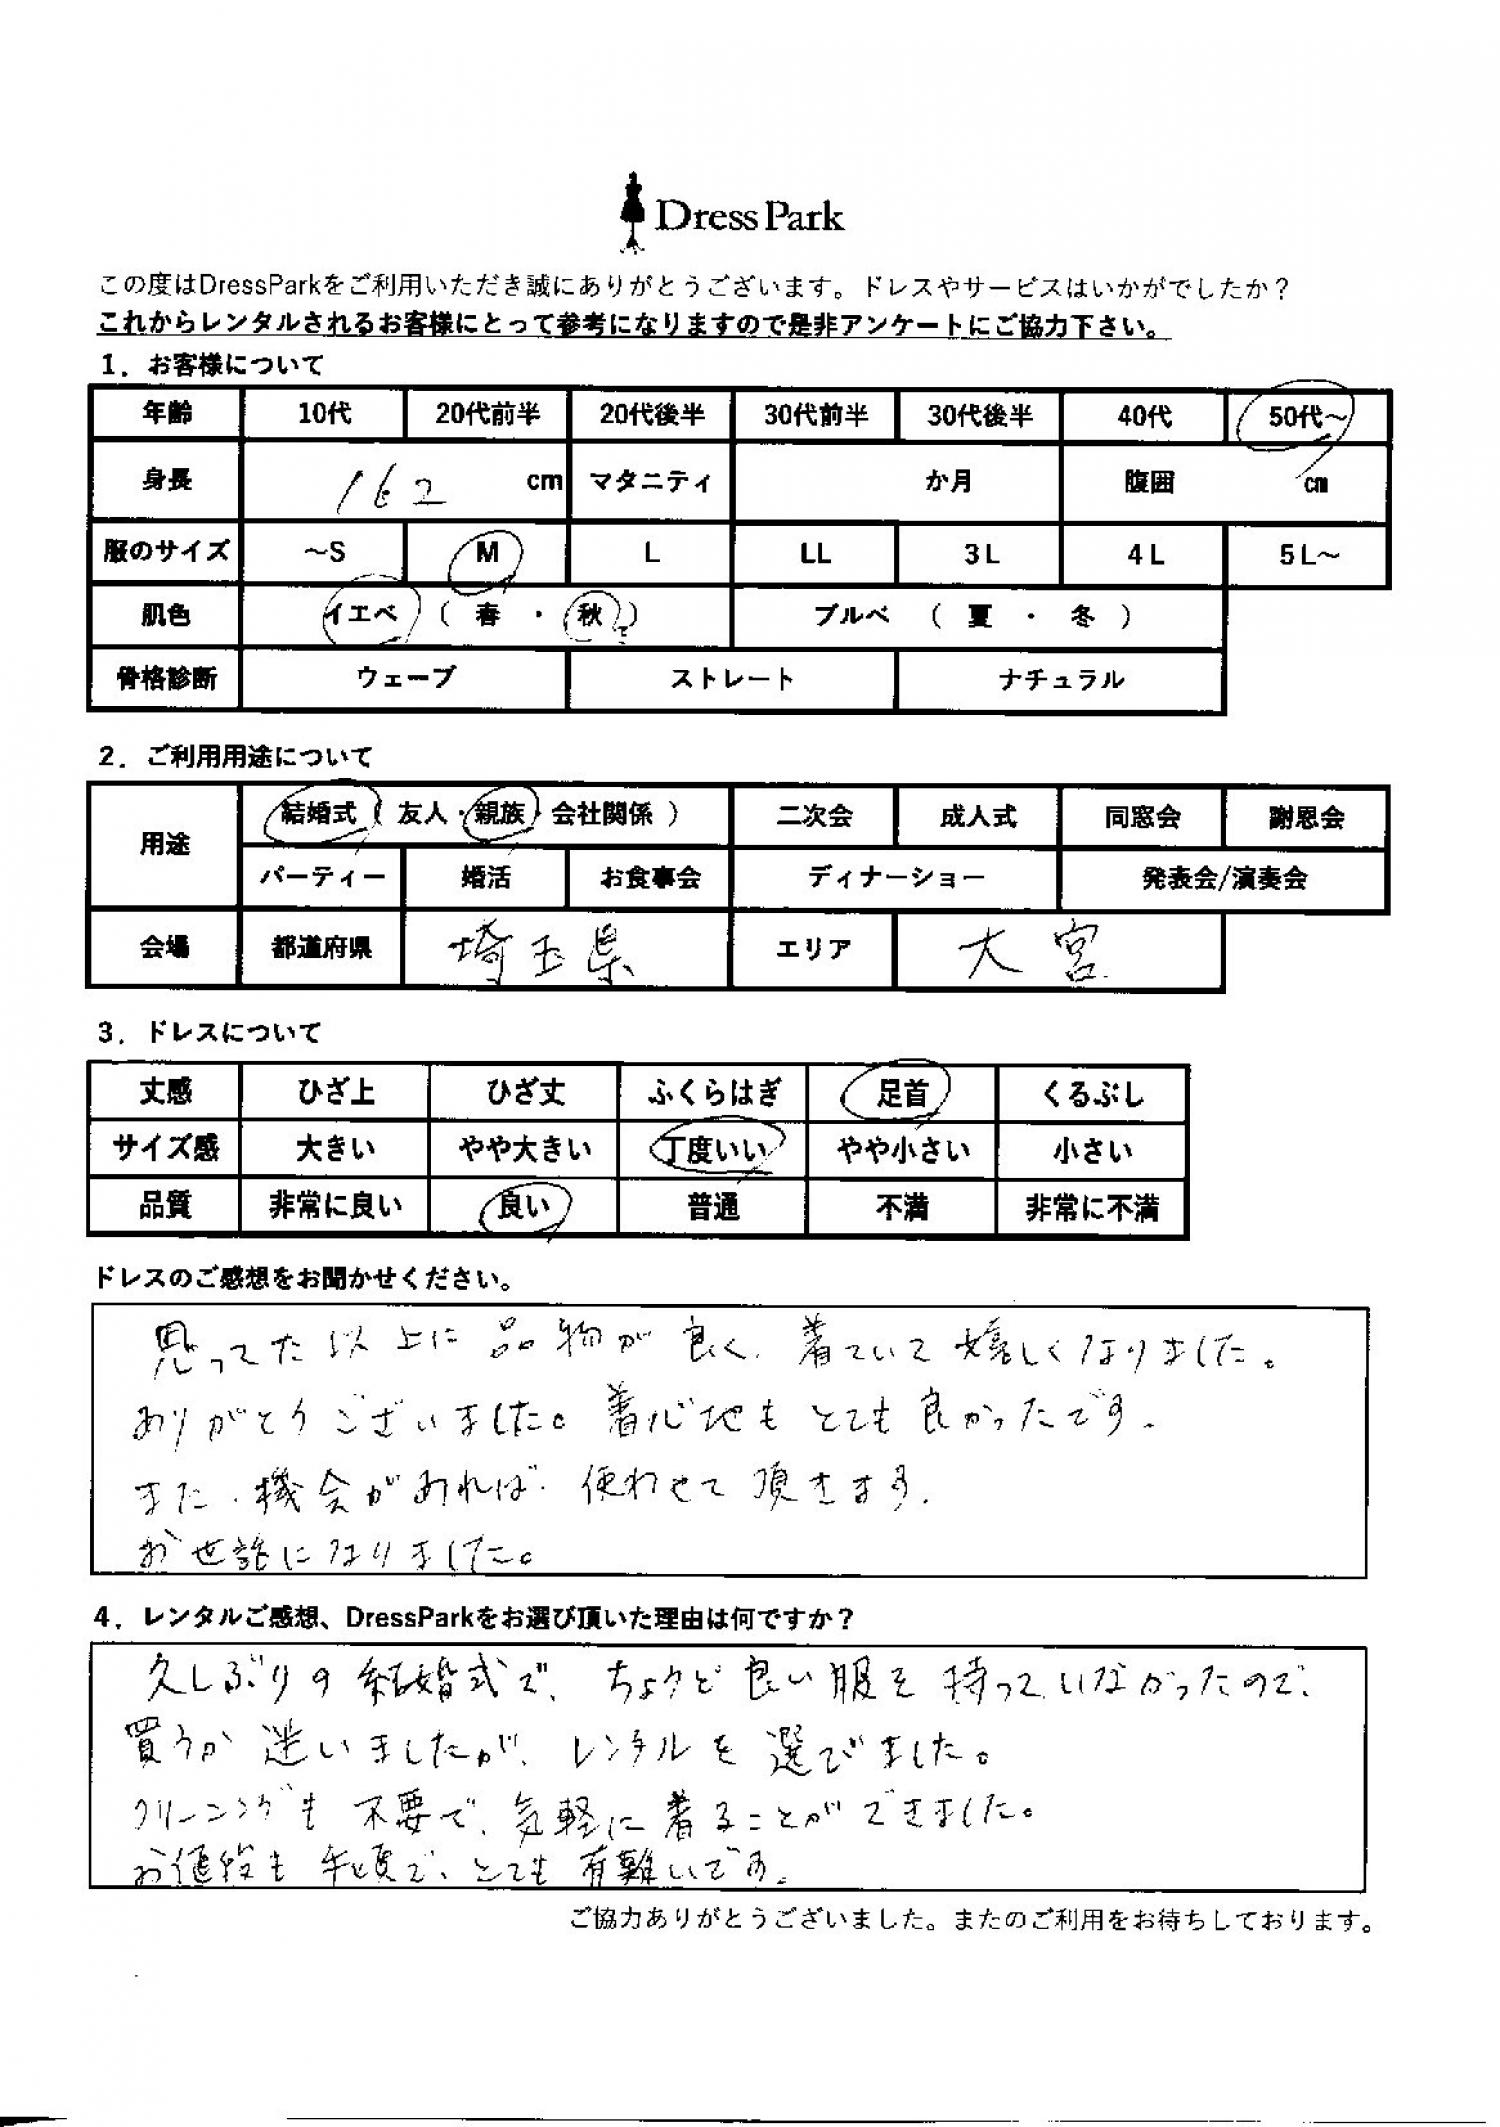 Dress Park
この度はDressParkをご利用いただき誠にありがとうございます。ドレスやサービスはいかがでしたか？
これからレンタルされるお客様にとって参考になりますので是非アンケートにご協力下さい。
1．お客様について
年齢 10代 20代前半 20代後半 30代前半 30代後半 40代 50代～
身長 162 cm マタニティ か月 腹囲 cm
服のサイズ ～S M L LL 3L 4L 5L～
肌色 イエベ （ 春 ・ 秋 ） ブルベ （ 夏 ・ 冬 ）
骨格診断 ウェーブ ストレート ナチュラル
2．ご利用用途について
用途 結婚式（ 友人・親族・会社関係 ） 二次会 成人式 同窓会 謝恩会
パーティー 婚活 お食事会 ディナーショー 発表会/演奏会
会場 都道府県 埼玉県 エリア 大宮
3．ドレスについて
丈感 ひざ上 ひざ丈 ふくらはぎ 足首 くるぶし
サイズ感 大きい やや大きい 丁度いい やや小さい 小さい
品質 非常に良い 良い 普通 不満 非常に不満
ドレスのご感想をお聞かせください。
思ってた以上に品物が良く、着ていて嬉しくなりました。
ありがとうございました。着心地もとても良かったです。
また、機会があれば、使わせて頂きます。
お世話になりました。
4．レンタルご感想、DressParkをお選び頂いた理由は何ですか？
久しぶりの結婚式で、ちょうど良い服を持っていなかったので、
買うか迷いましたが、レンタルを選びました。
クリーニングも不要で、気軽に着ることができました。
お値段も手頃で、とても有難いです。
ご協力ありがとうございました。またのご利用をお待ちしております。